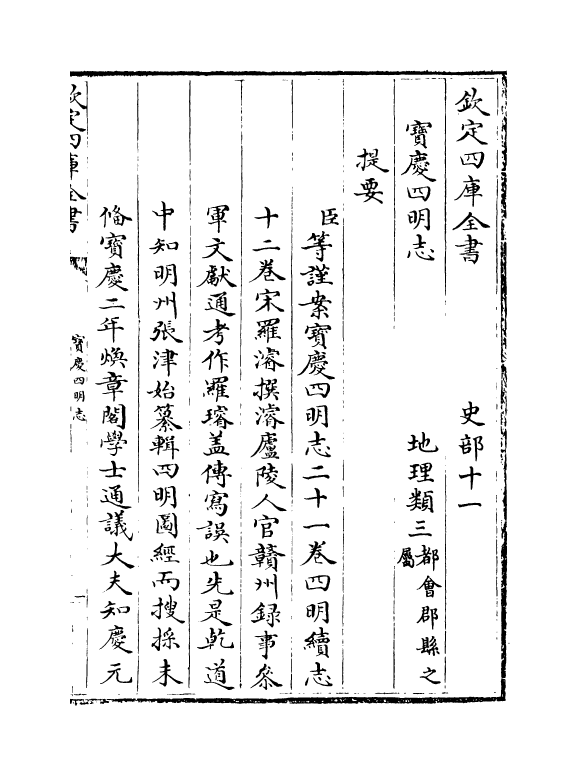 欽定四庫全書 史部十一
寶慶四明志 地理類三都會郡縣之屬
提要
臣等謹案寶慶四明志二十一卷四明續志
十二卷宋羅濬撰濬廬陵人官贛州録事叅
軍文獻通考作羅璿蓋傳寫誤也先是乾道
中知明州張津始纂輯四明圖經而搜採未
備寶慶二年煥章閣學士通議大夫知慶元
欽定四庫全書 寶慶四明志 一